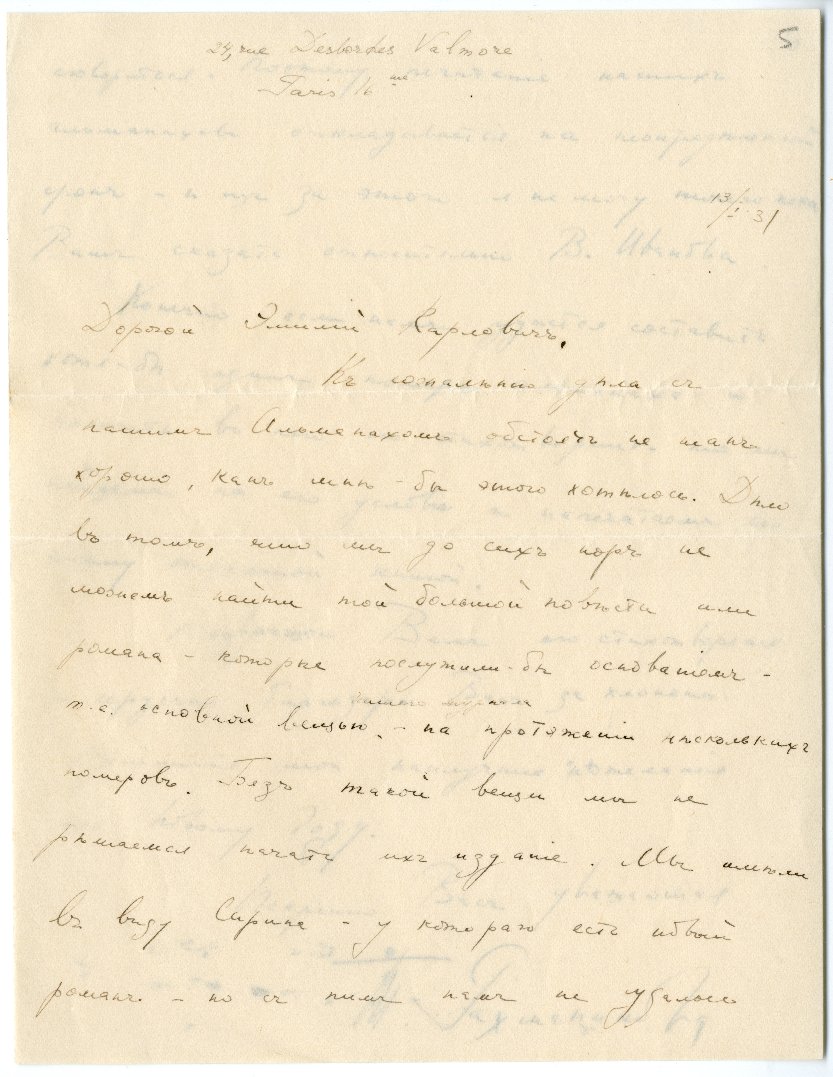 5
24, rue Desbordes Valmore
Paris 16 me
13/I 31
Дорогой Эмилий Карловичъ,
Къ сожалѣнію дѣла съ
нашимъ Альманахомъ обстоятъ не такъ
хорошо, какъ мнѣ-бы этого хотѣлось. Дѣло
въ томъ, что мы до сихъ поръ не
можемъ найти той большой повѣсти или
романа – которые послужили-бы основаніемъ –
нашего журнала
т.е. основной вещью – на протяженіи нѣсколькихъ
номеровъ. Безъ такой вещи мы не
рѣшаемся начать ихъ изданіе. Мы имѣли
въ виду Сирина – у котораго есть новый
романъ – но съ нимъ намъ не удалось